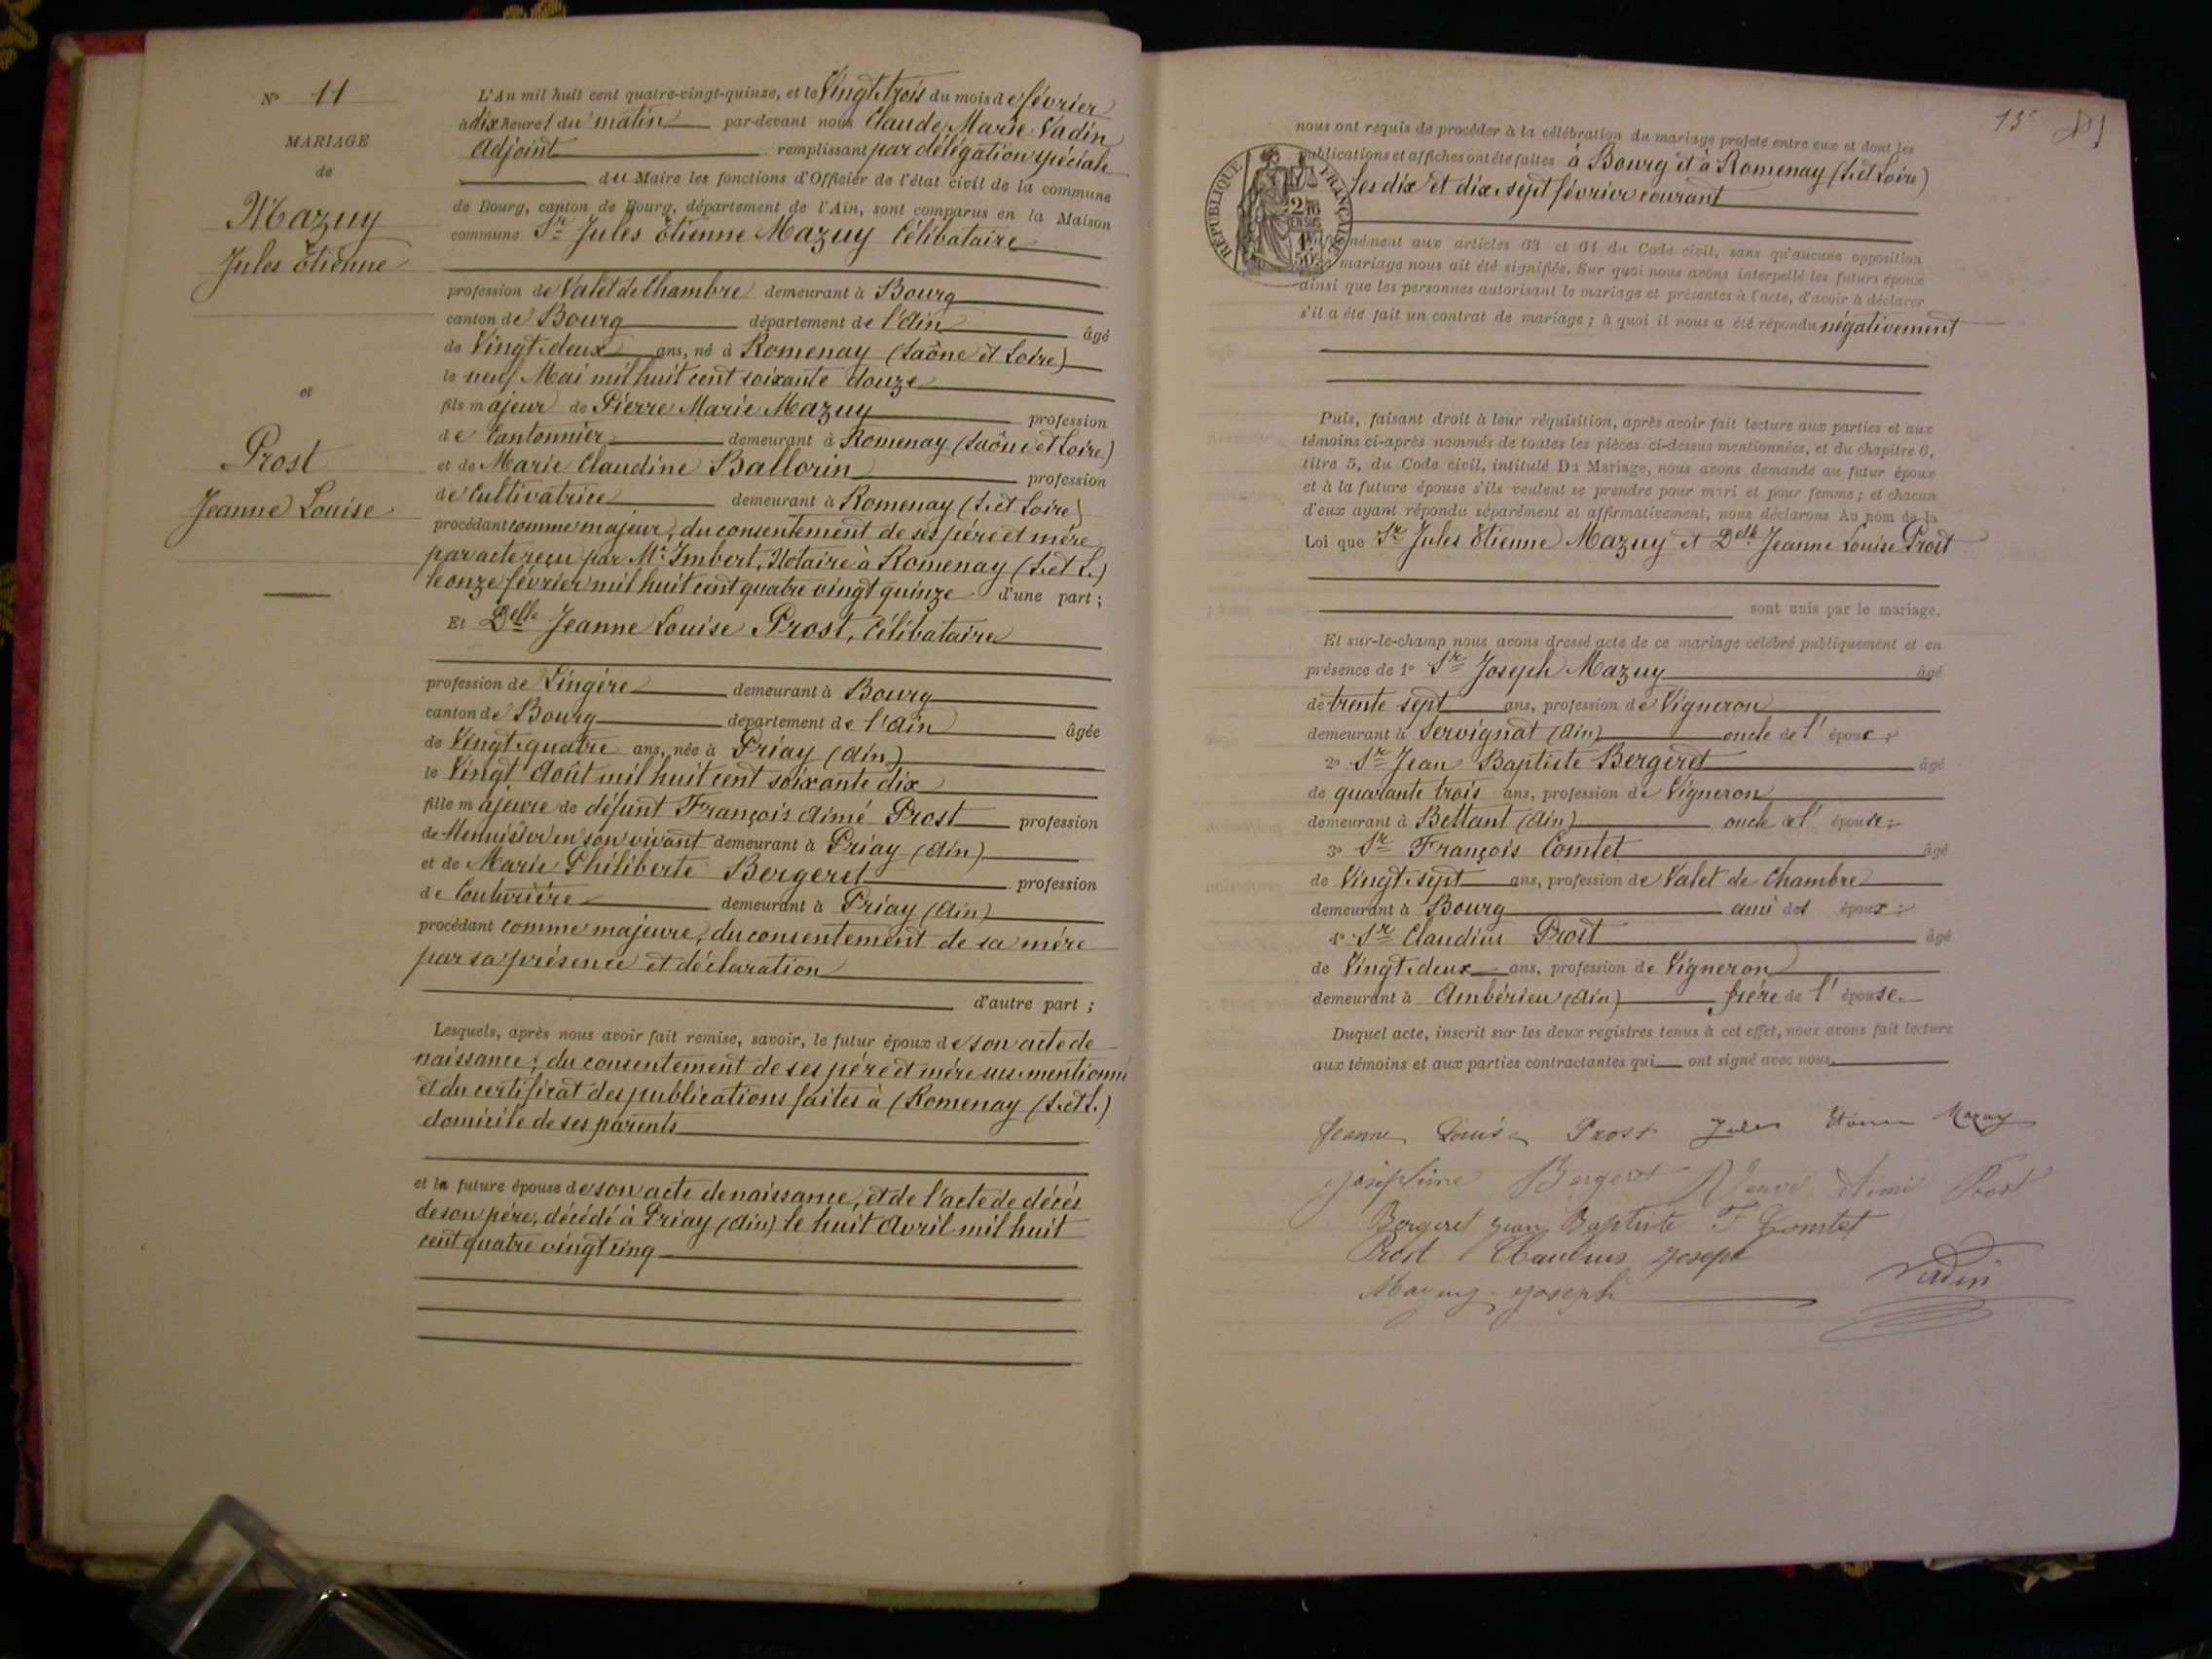 N° 11
MARIAGE
de
Mazuy
Jules Etienne
et
Prost
Jeanne Louise
L'An mil huit cent quatre-vingt-quinze, et le Vingt trois du mois de février
à dix heures du matin par-devant nous Claude Marie Vadin
Adjoint remplissant par délégation spéciale
du Maire les fonctions d'Officier de l'état civil de la commune
de Bourg, canton de Bourg, département de l'Ain, sont comparus en la Maison
commune Sr Jules Etienne Mazuy Célibataire
profession de Valet de Chambre demeurant à Bourg
canton de Bourg département de l'Ain âgé
de Vingt-deux ans, né à Romenay (Saône et Loire)
le neuf Mai mil huit cent soixante douze
fils majeur de Pierre Marie Mazuy profession
de Cantonnier demeurant à Romenay (Saône et Loire)
et de Marie Claudine Ballorin profession
de Cultivatrice demeurant à Romenay (S. et Loire)
procédant comme majeur, du consentement de ses père et mère
par acte reçu par Mr Imbert, Notaire à Romenay (S. et L.)
le onze février mil huit cent quatre vingt quinze d'une part ;
Et Delle Jeanne Louise Prost, Célibataire
profession de Lingère demeurant à Bourg
canton de Bourg département de l'Ain âgée
de Vingt-quatre ans, née à Priay (Ain)
le Vingt Août mil huit cent soixante dix
fille majeure de défunt François Aimé Prost profession
de Menuisier en son vivant demeurant à Priay (Ain)
et de Marie Philiberte Bergeret profession
de Couturière demeurant à Priay (Ain)
procédant comme majeure, du consentement de sa mère
par sa présence et déclaration
d'autre part ;
Lesquels, après nous avoir fait remise, savoir, le futur époux de son acte de
naissance, du consentement de ses père et mère sus-mentionné
et du certificat des publications faites à (Romenay (S. et L.)
domicile de ses parents
et la future épouse de son acte de naissance, et de l'acte de décès
de son père, décédé à Priay (Ain) le huit Avril mil huit
cent quatre vingt cinq
15e
RÉPUBLIQUE FRANÇAISE
nous ont requis de procéder à la célébration du mariage projeté entre eux et dont les
publications et affiches ont été faites à Bourg et à Romenay (S. et Loire)
les dix et dix-sept février courant
conformément aux articles 63 et 64 du Code civil, sans qu'aucune opposition
mariage nous ait été signifiée. Sur quoi nous avons interpellé les futurs époux
ainsi que les personnes autorisant le mariage et présentes à l'acte, d'avoir à déclarer
s'il a été fait un contrat de mariage ; à quoi il nous a été répondu négativement
Puis, faisant droit à leur réquisition, après avoir fait lecture aux parties et aux
témoins ci-après nommés de toutes les pièces ci-dessus mentionnées, et du chapitre 6,
titre 5, du Code civil, intitulé Du Mariage, nous avons demandé au futur époux
et à la future épouse s'ils veulent se prendre pour mari et pour femme ; et chacun
d'eux ayant répondu séparément et affirmativement, nous déclarons Au nom de la
Loi que Sr Jules Etienne Mazuy et Delle Jeanne Louise Prost
sont unis par le mariage.
Et sur-le-champ nous avons dressé acte de ce mariage célébré publiquement et en
présence de 1° Sr Joseph Mazuy âgé
de trente sept ans, profession de Vigneron
demeurant à Servignat (Ain) oncle de l'époux ;
2° Sr Jean Baptiste Bergeret âgé
de quarante trois ans, profession de Vigneron
demeurant à Bettant (Ain) oncle de l'épouse ;
3° Sr François Comtet âgé
de Vingt-sept ans, profession de Valet de Chambre
demeurant à Bourg ami des époux ;
4° Sr Claudius Prost âgé
de Vingt-deux ans, profession de Vigneron
demeurant à Ambérieu (Ain) frère de l'épouse.
Duquel acte, inscrit sur les deux registres tenus à cet effet, nous avons fait lecture
aux témoins et aux parties contractantes qui ont signé avec nous.
Jeanne Louise Prost Jules Etienne Mazuy
Joséphine Bergeret Veuve Aimé Prost
Bergeret Jean Baptiste F Comtet
Prost Claudius Joseph
Mazuy Joseph Vadin